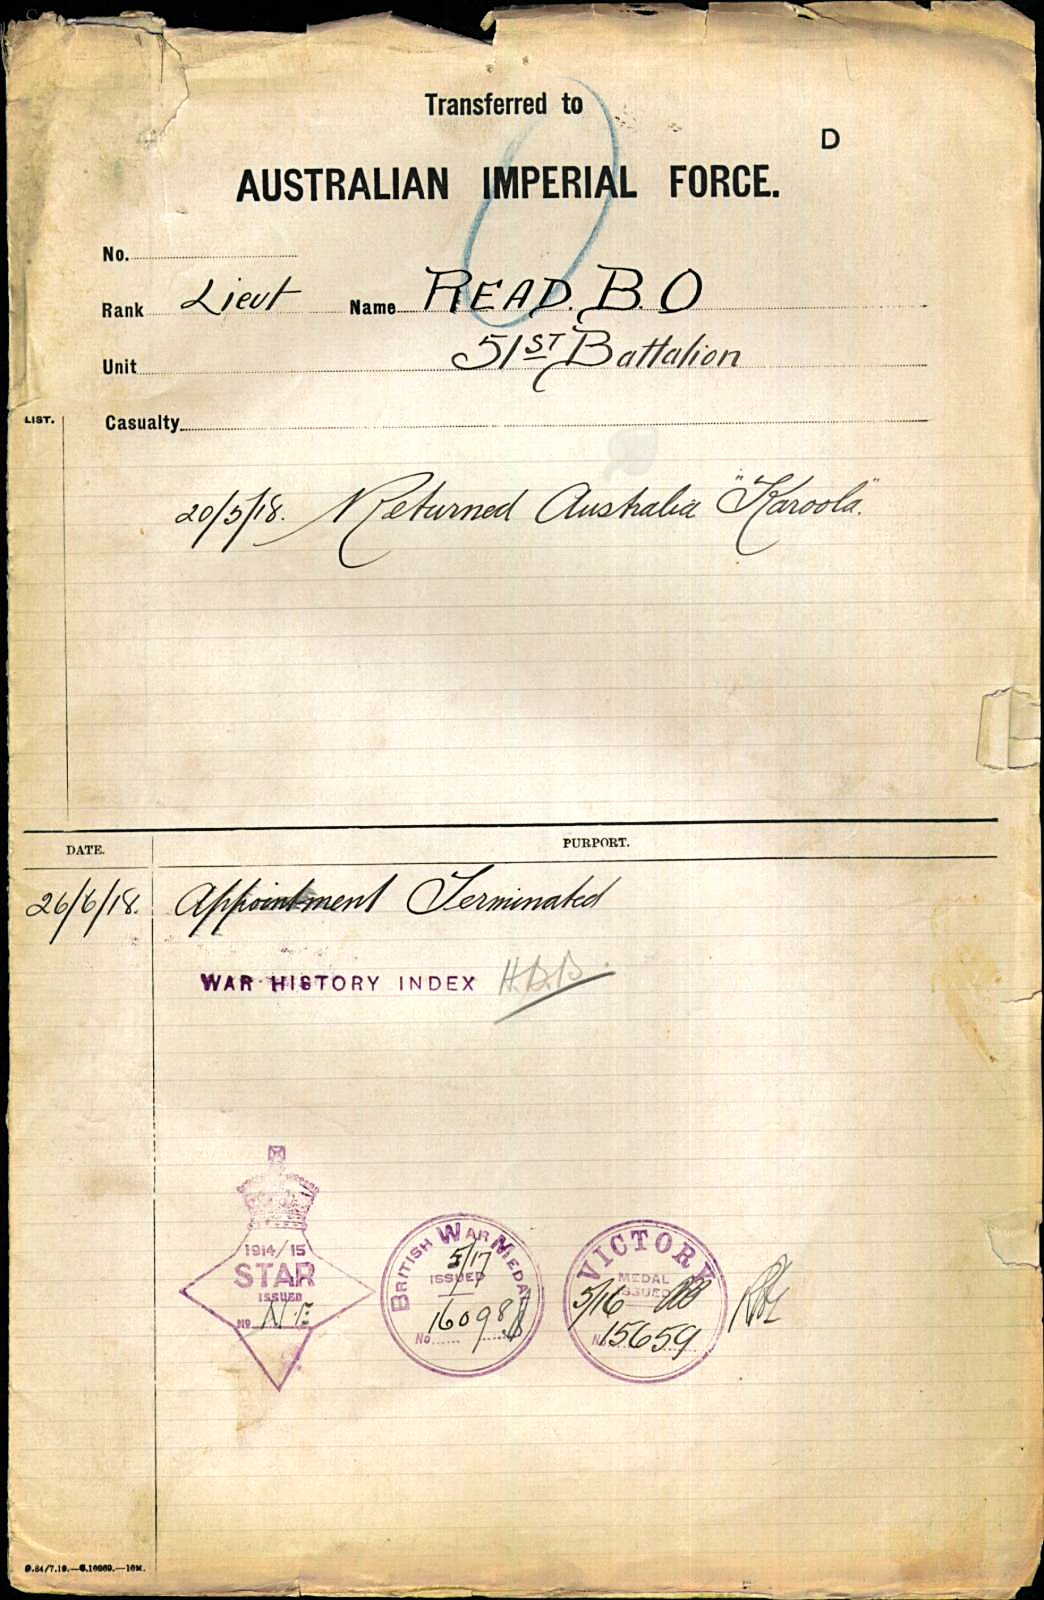 Transferred to
D
AUSTRALIAN IMPERIAL FORCE.
No.
Rank Lieut Name READ. B. O
Unit 51ST Battalion
LIST.
Casualty
20/5/18. Returned Australia "Karoola".
DATE. PURPORT.
26/6/18. Appointment Terminated
WAR HISTORY INDEX H.D.B.
1914/15
STAR
ISSUED
No N.E.
BRITISH WAR MEDAL
5/17
ISSUED
16098
No
VICTORY
MEDAL
ISSUED
5/16
No 15659